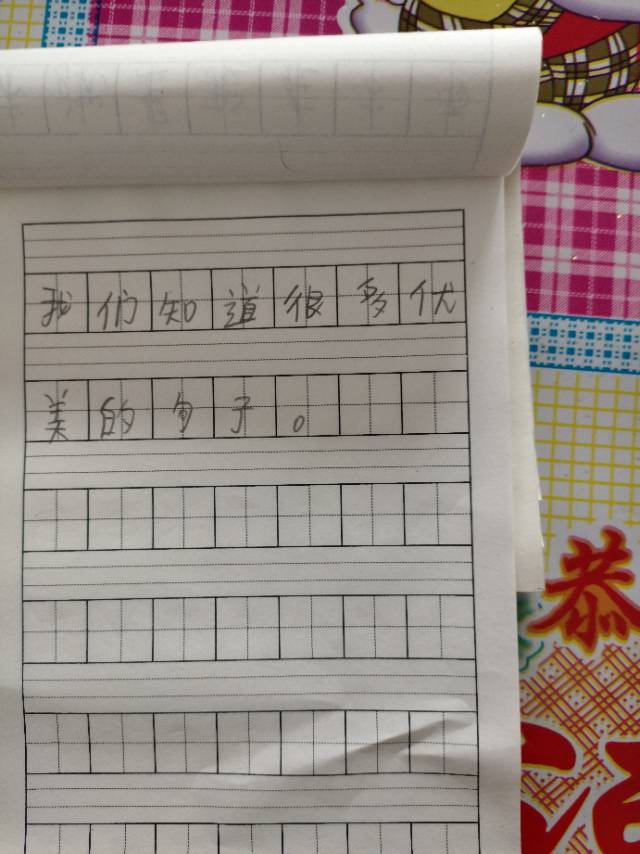 我们知道很多优
美的句子。
恭